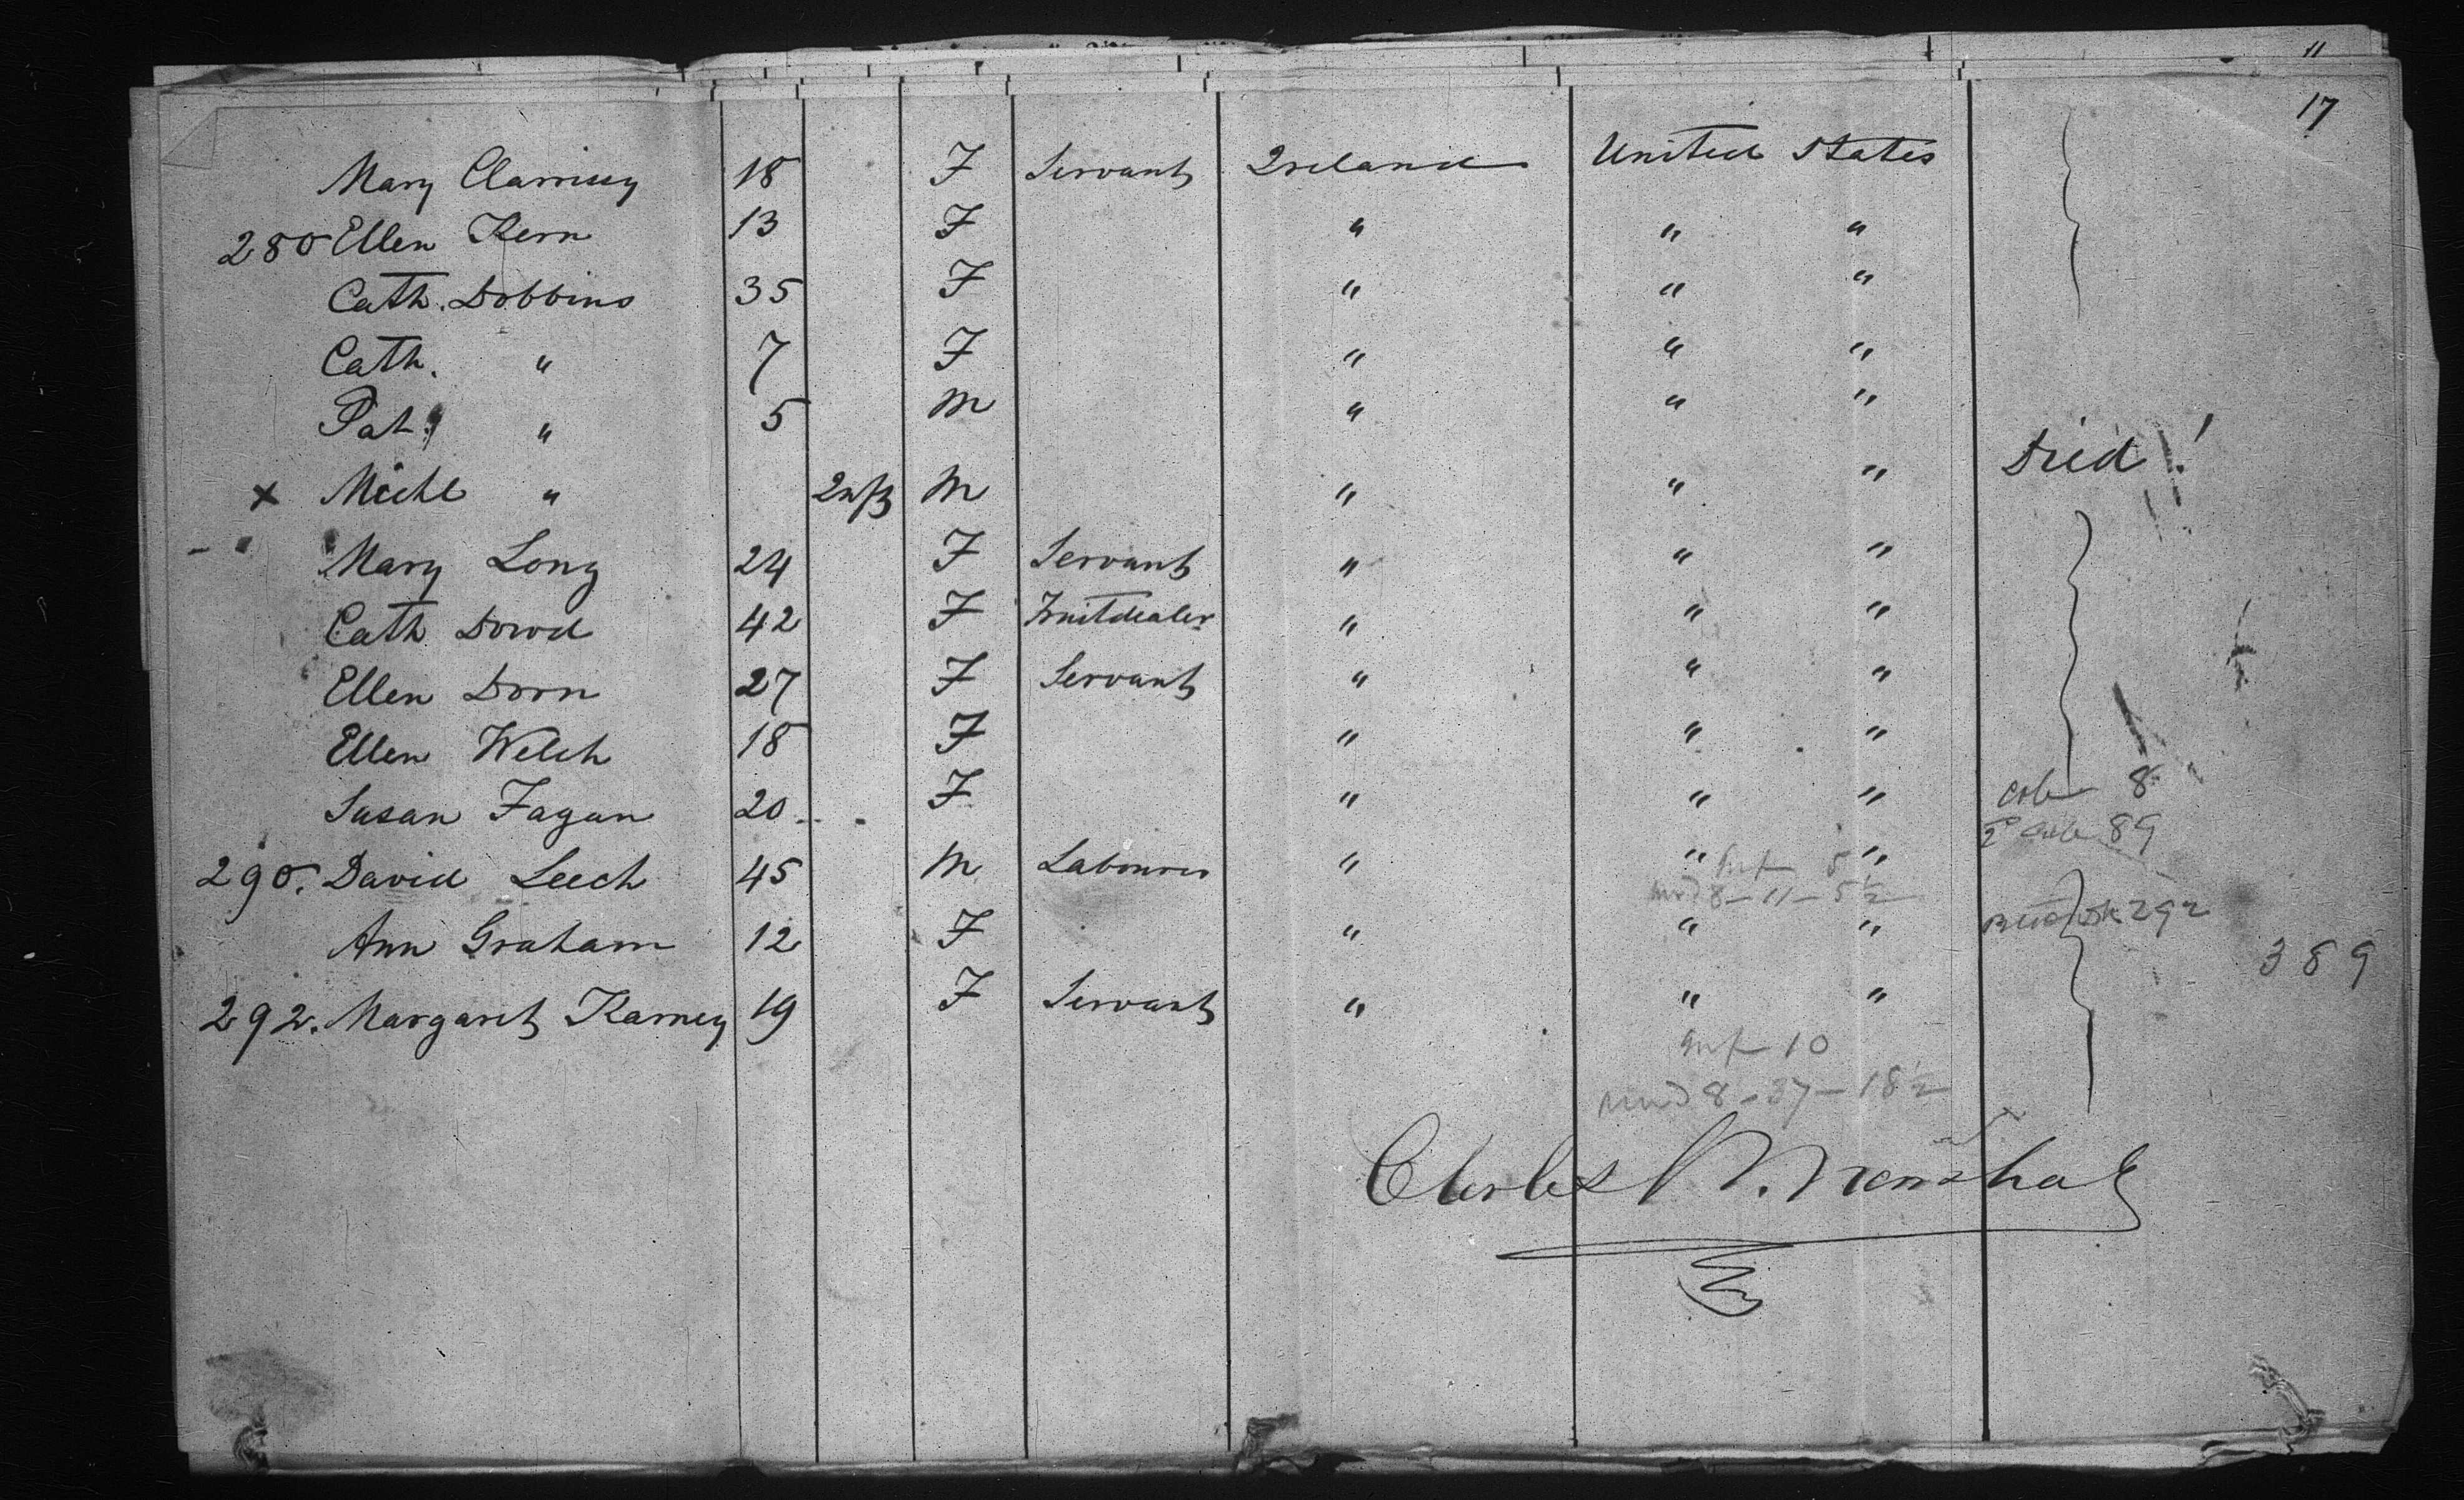 "
17
Mary 18 F Servant Ireland United States
280 Ellen Kern 13 F " " "
Cath. Dobbins 35 F " " "
Cath. " 7 F " " "
Pat. " 5 M " " "
x Michl " M " " " Died!
Mary Long 24 F Servant " " "
Cath Dowd 42 F Fruitdealer " " "
Ellen Dorn 27 F Servant " " "
Ellen Welch 18 F " " "
Susan Fagan 20 F " " " 8
89
290. David Leech 45 M Labourer " " "
5
8-11-5½
Ann Graham 12 F " " " 292
389
292. Margaret Karney 19 F Servant " " "
Inf 10
8-37-18½